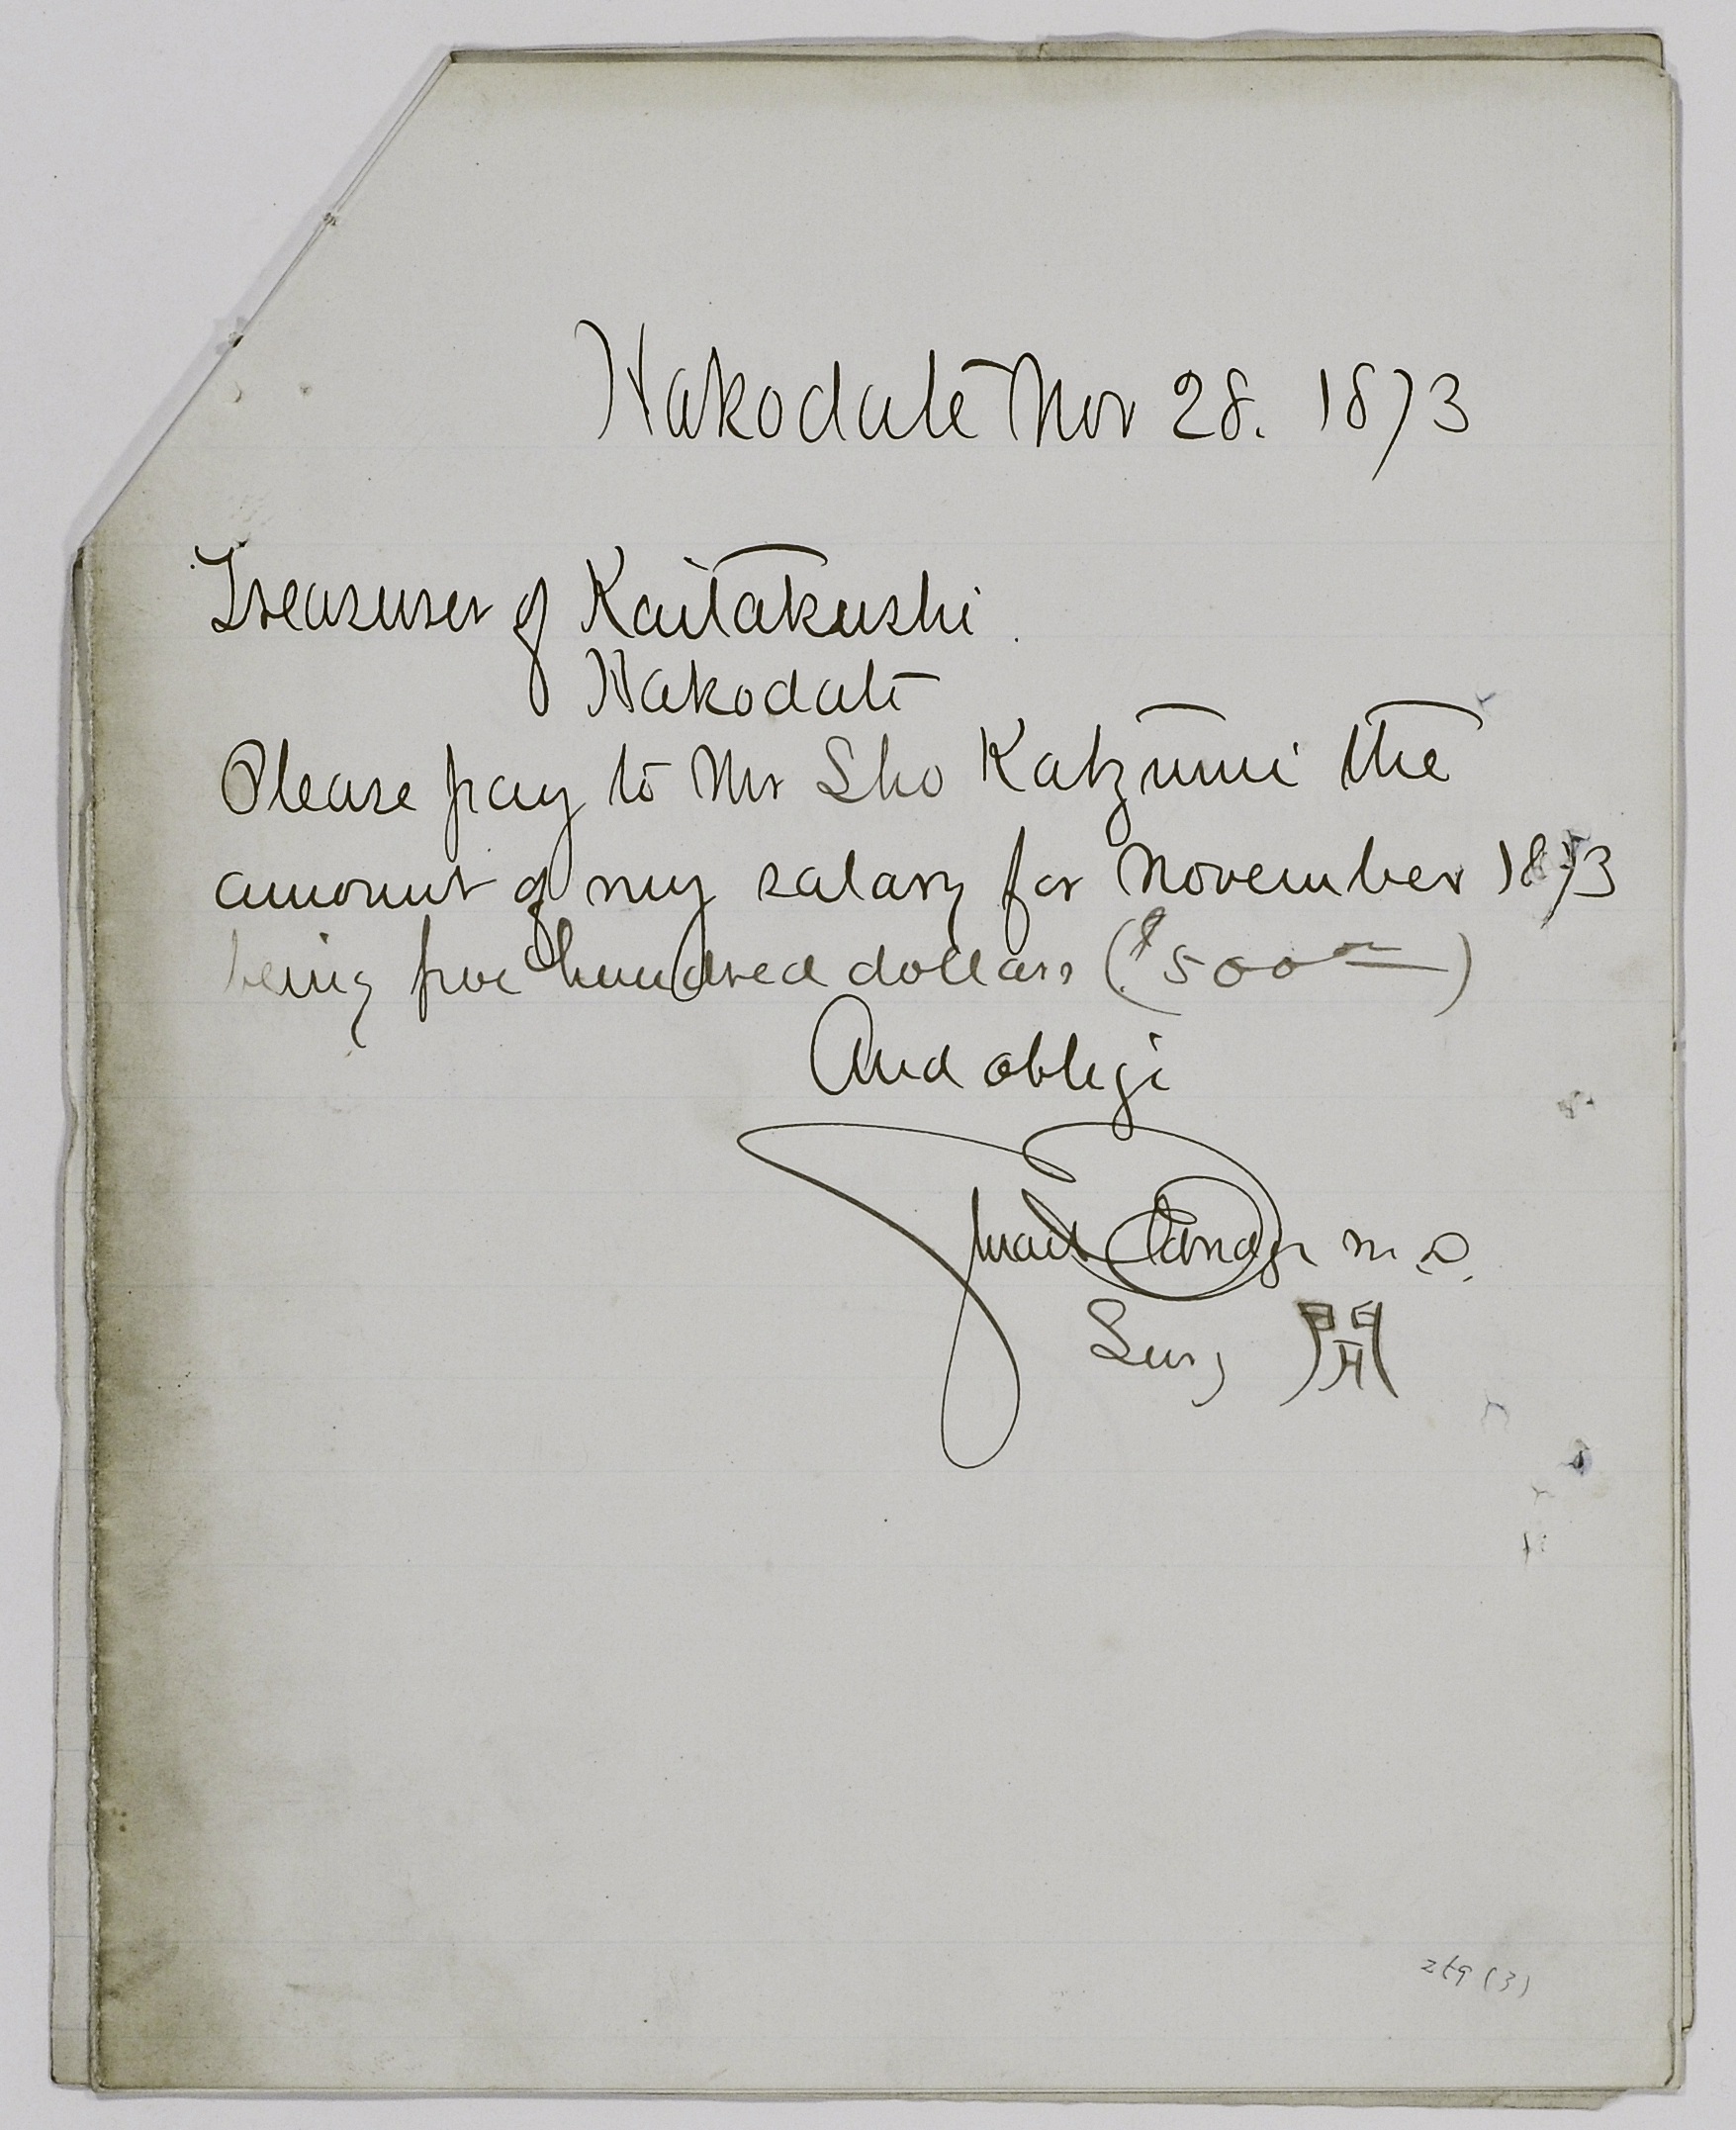 Hakodate Nov 28. 1873
Treasurer of Kaitakushi.
Hakodate
Please pay to Mr Sho Katzumi the
amount of my salary for November 1873
being five hundred dollars ($500 00)
And oblige
Stuart Eldridge M.D.
Surg 開
269 (3)